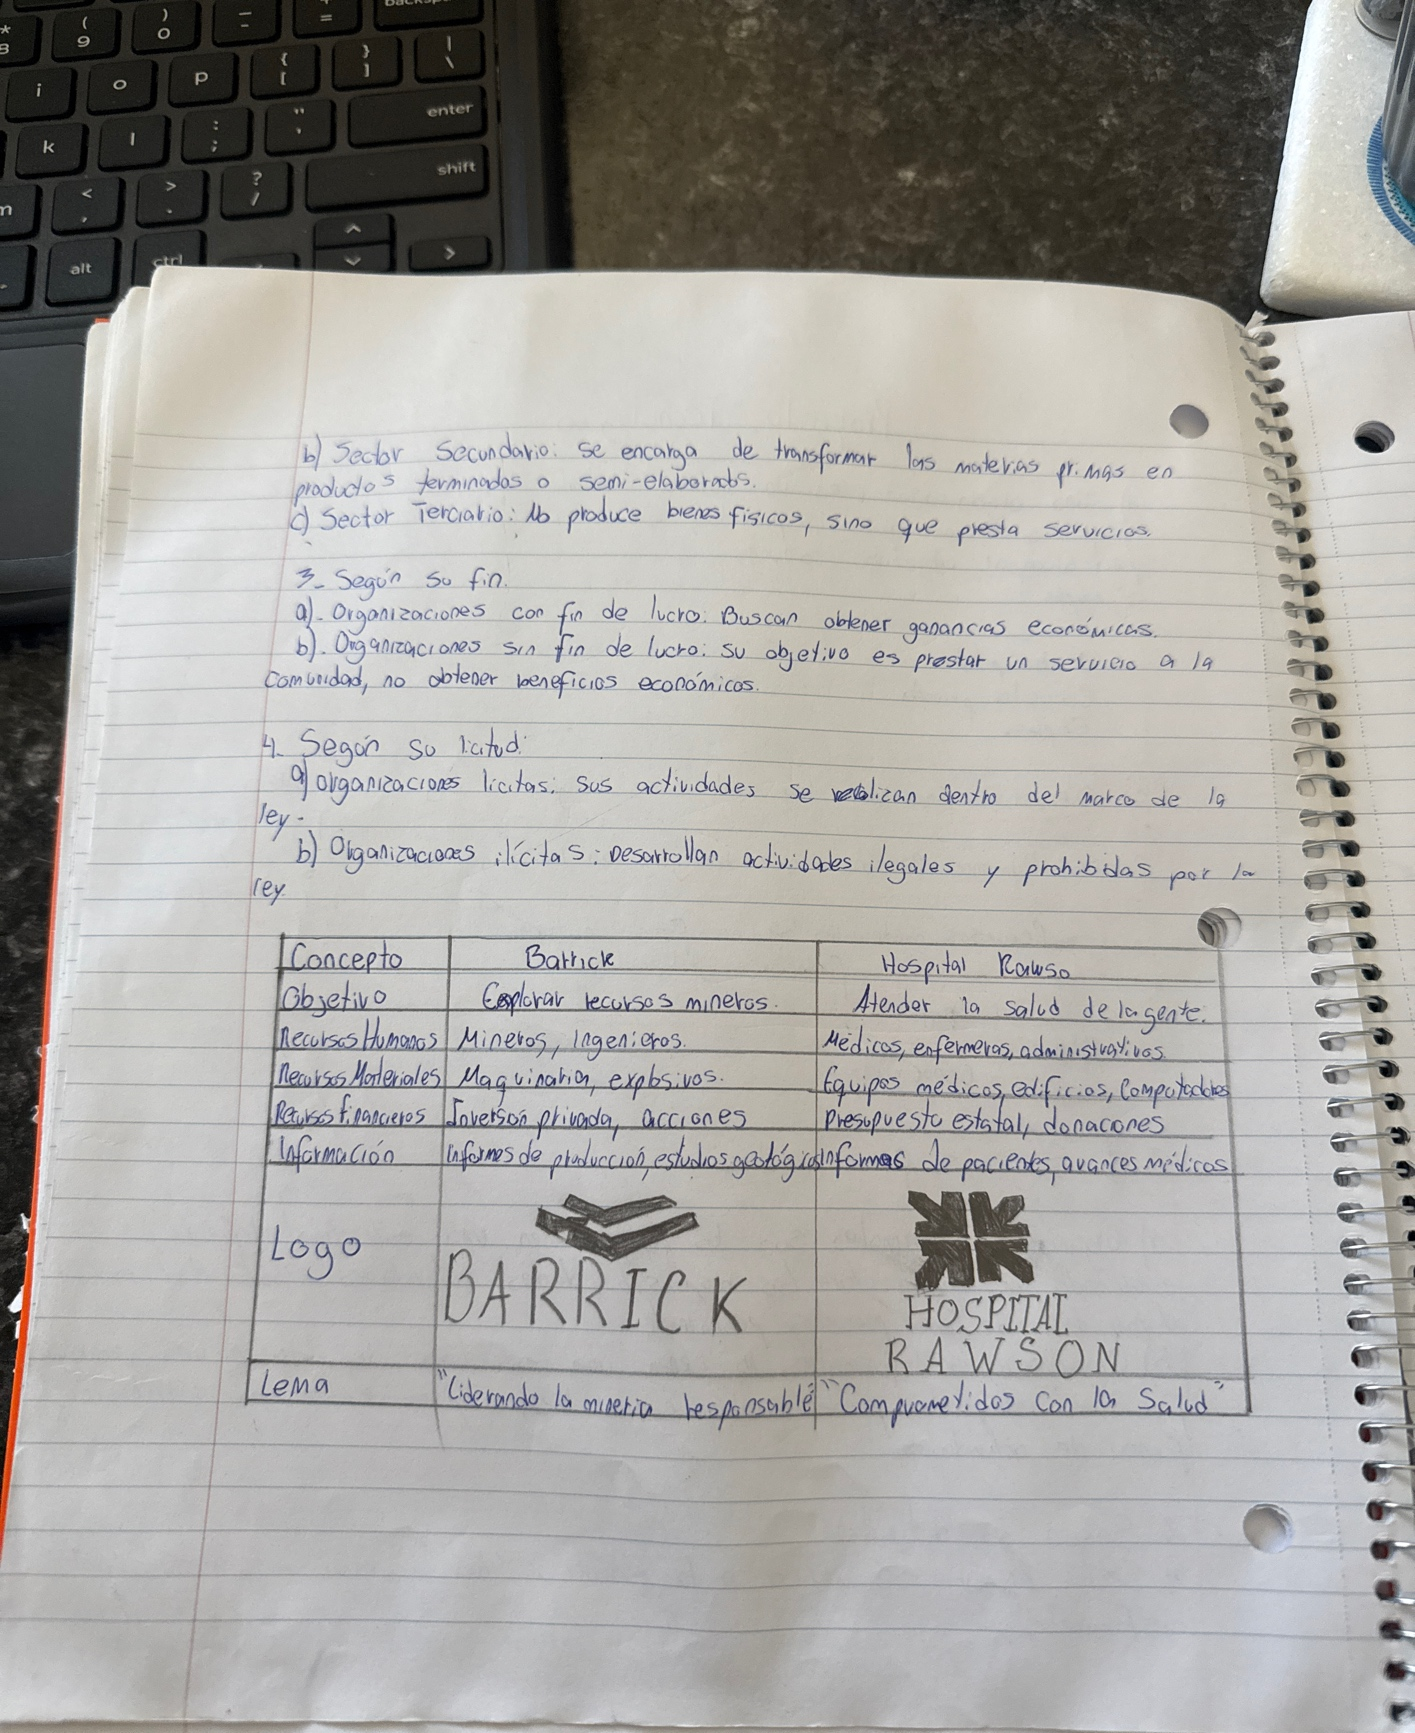 b) Sector Secundario: se encarga de transformar las materias primas en
productos terminados o semi-elaborados.
c) Sector Terciario: No produce bienes físicos, sino que presta servicios.
3- Según su fin.
a)- Organizaciones con fin de lucro: Buscan obtener ganancias económicas.
b). Organizaciones sin fin de lucro: su objetivo es prestar un servicio a la
comunidad, no obtener beneficios económicos.
4- Según su licitud:
a) organizaciones licitas: sus actividades se realizan dentro del marco de la
ley.
b) Organizaciones ilícitas: Desarrollan actividades ilegales y prohibidas por la
ley.
Concepto Barrick Hospital Rawso
Objetivo Explorar recursos mineros. Atender la salud de la gente.
Recursos Humanos Mineros, Ingenieros. Médicos, enfermeras, administrativos.
Recursos Materiales Maquinaria, explosivos. Equipos médicos, edificios, Computadores
Recursos financieros Inversón privada, acciones Presupuesto estatal, donacones
Información Informes de producción, estudios geológicos Informas de pacientes, avances médicos
Logo BARRICK HOSPITAL
RAWSON
Lema "Liderando la mineria responsable" "Comprometidos con la Salud"
* 8 ( 9 ) 0 _ - + = backsp
i o p { [ } ] | \
k l : ; " ' enter
m < , > . ? / shift
alt ctrl